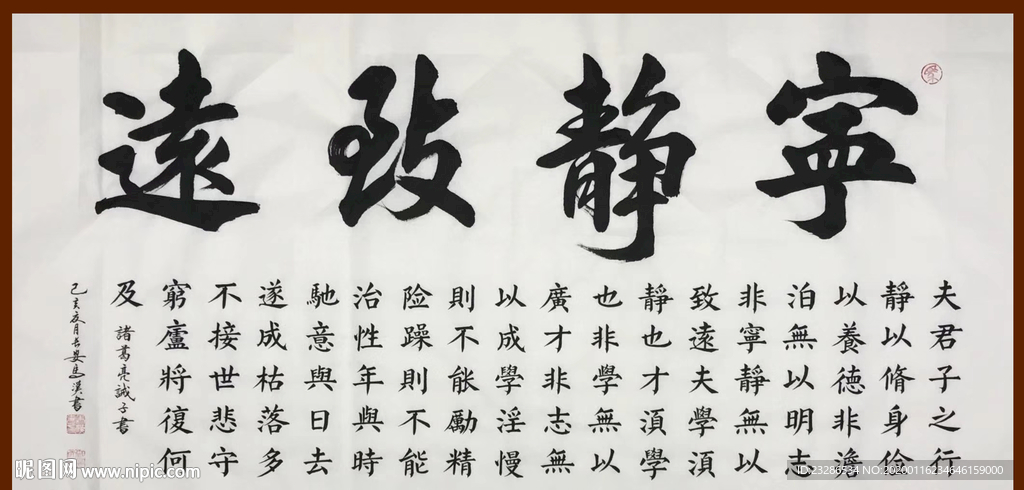 寧靜致遠
夫君子之行
靜以脩身儉
以養德非澹
泊無以明志
非寧靜無以
致遠夫學湏
靜也才湏學
也非學無以
廣才非志無
以成學淫慢
則不能勵精
险躁則不能
治性年與時
馳意與日去
遂成枯落多
不接世悲守
窮廬將復何
及 諸葛亮誡子書
己亥
昵图网 www.nipic.com
ID:23286534 NO:20200116234646159000